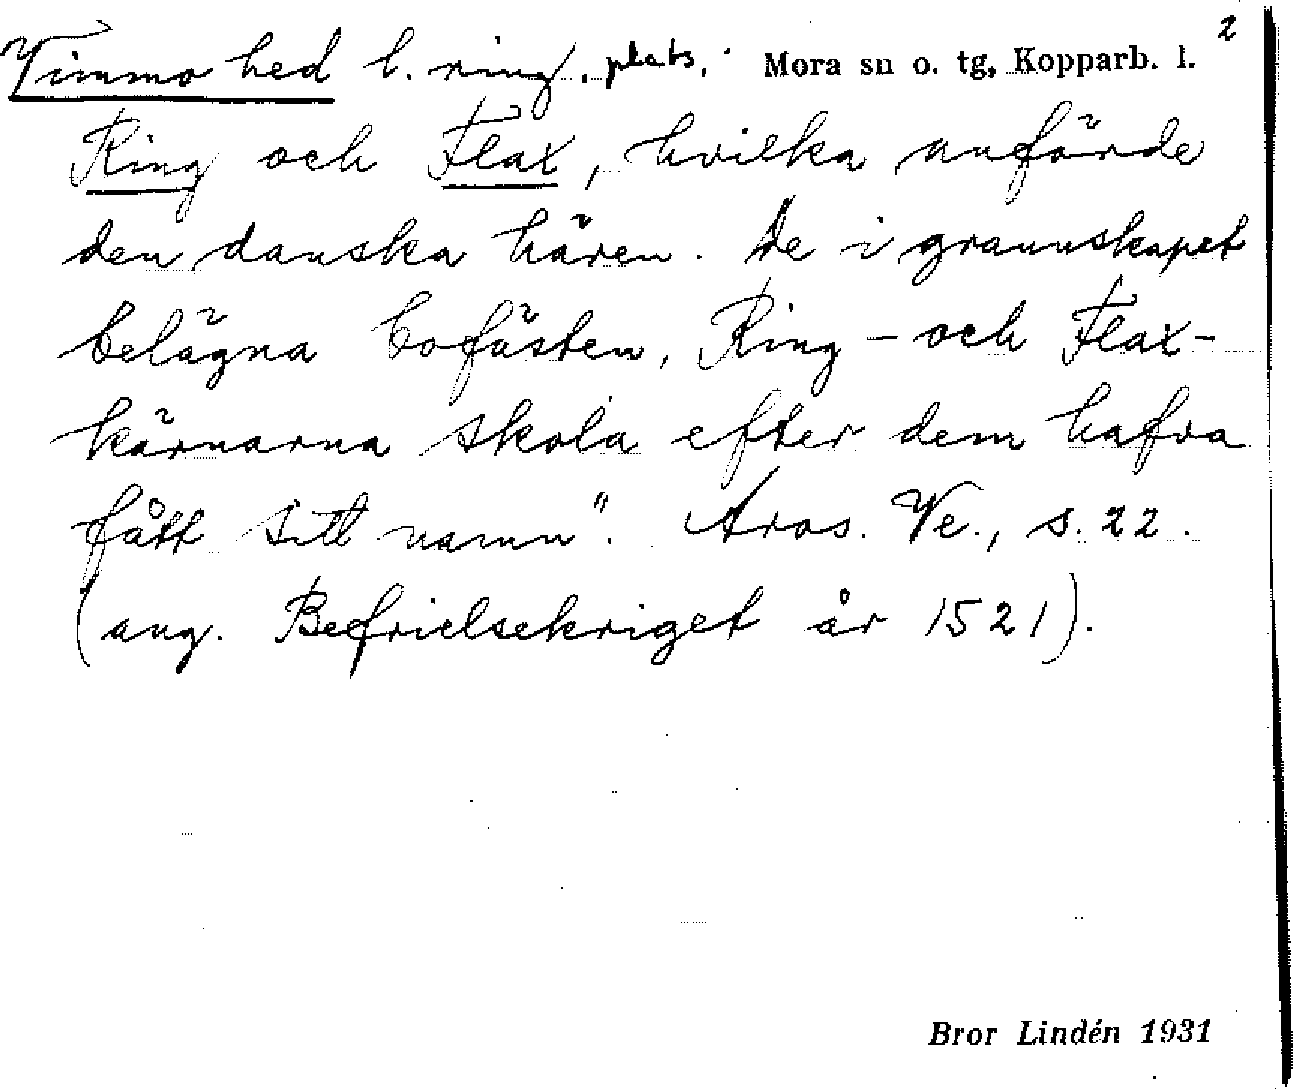 2
Vimmo hed l. ring. plats. Mora sn o. tg, Kopparb. l.
Ring och Flax, hvilka anförde
den danska hären. De i grannskapet
belägna bofästen, Ring- och Flax-
kärnarna skola efter dem hafva
fått sitt namn". Aros. Ve., s. 22.
(ang. Befrielsekriget år 1521).
Bror Lindén 1931